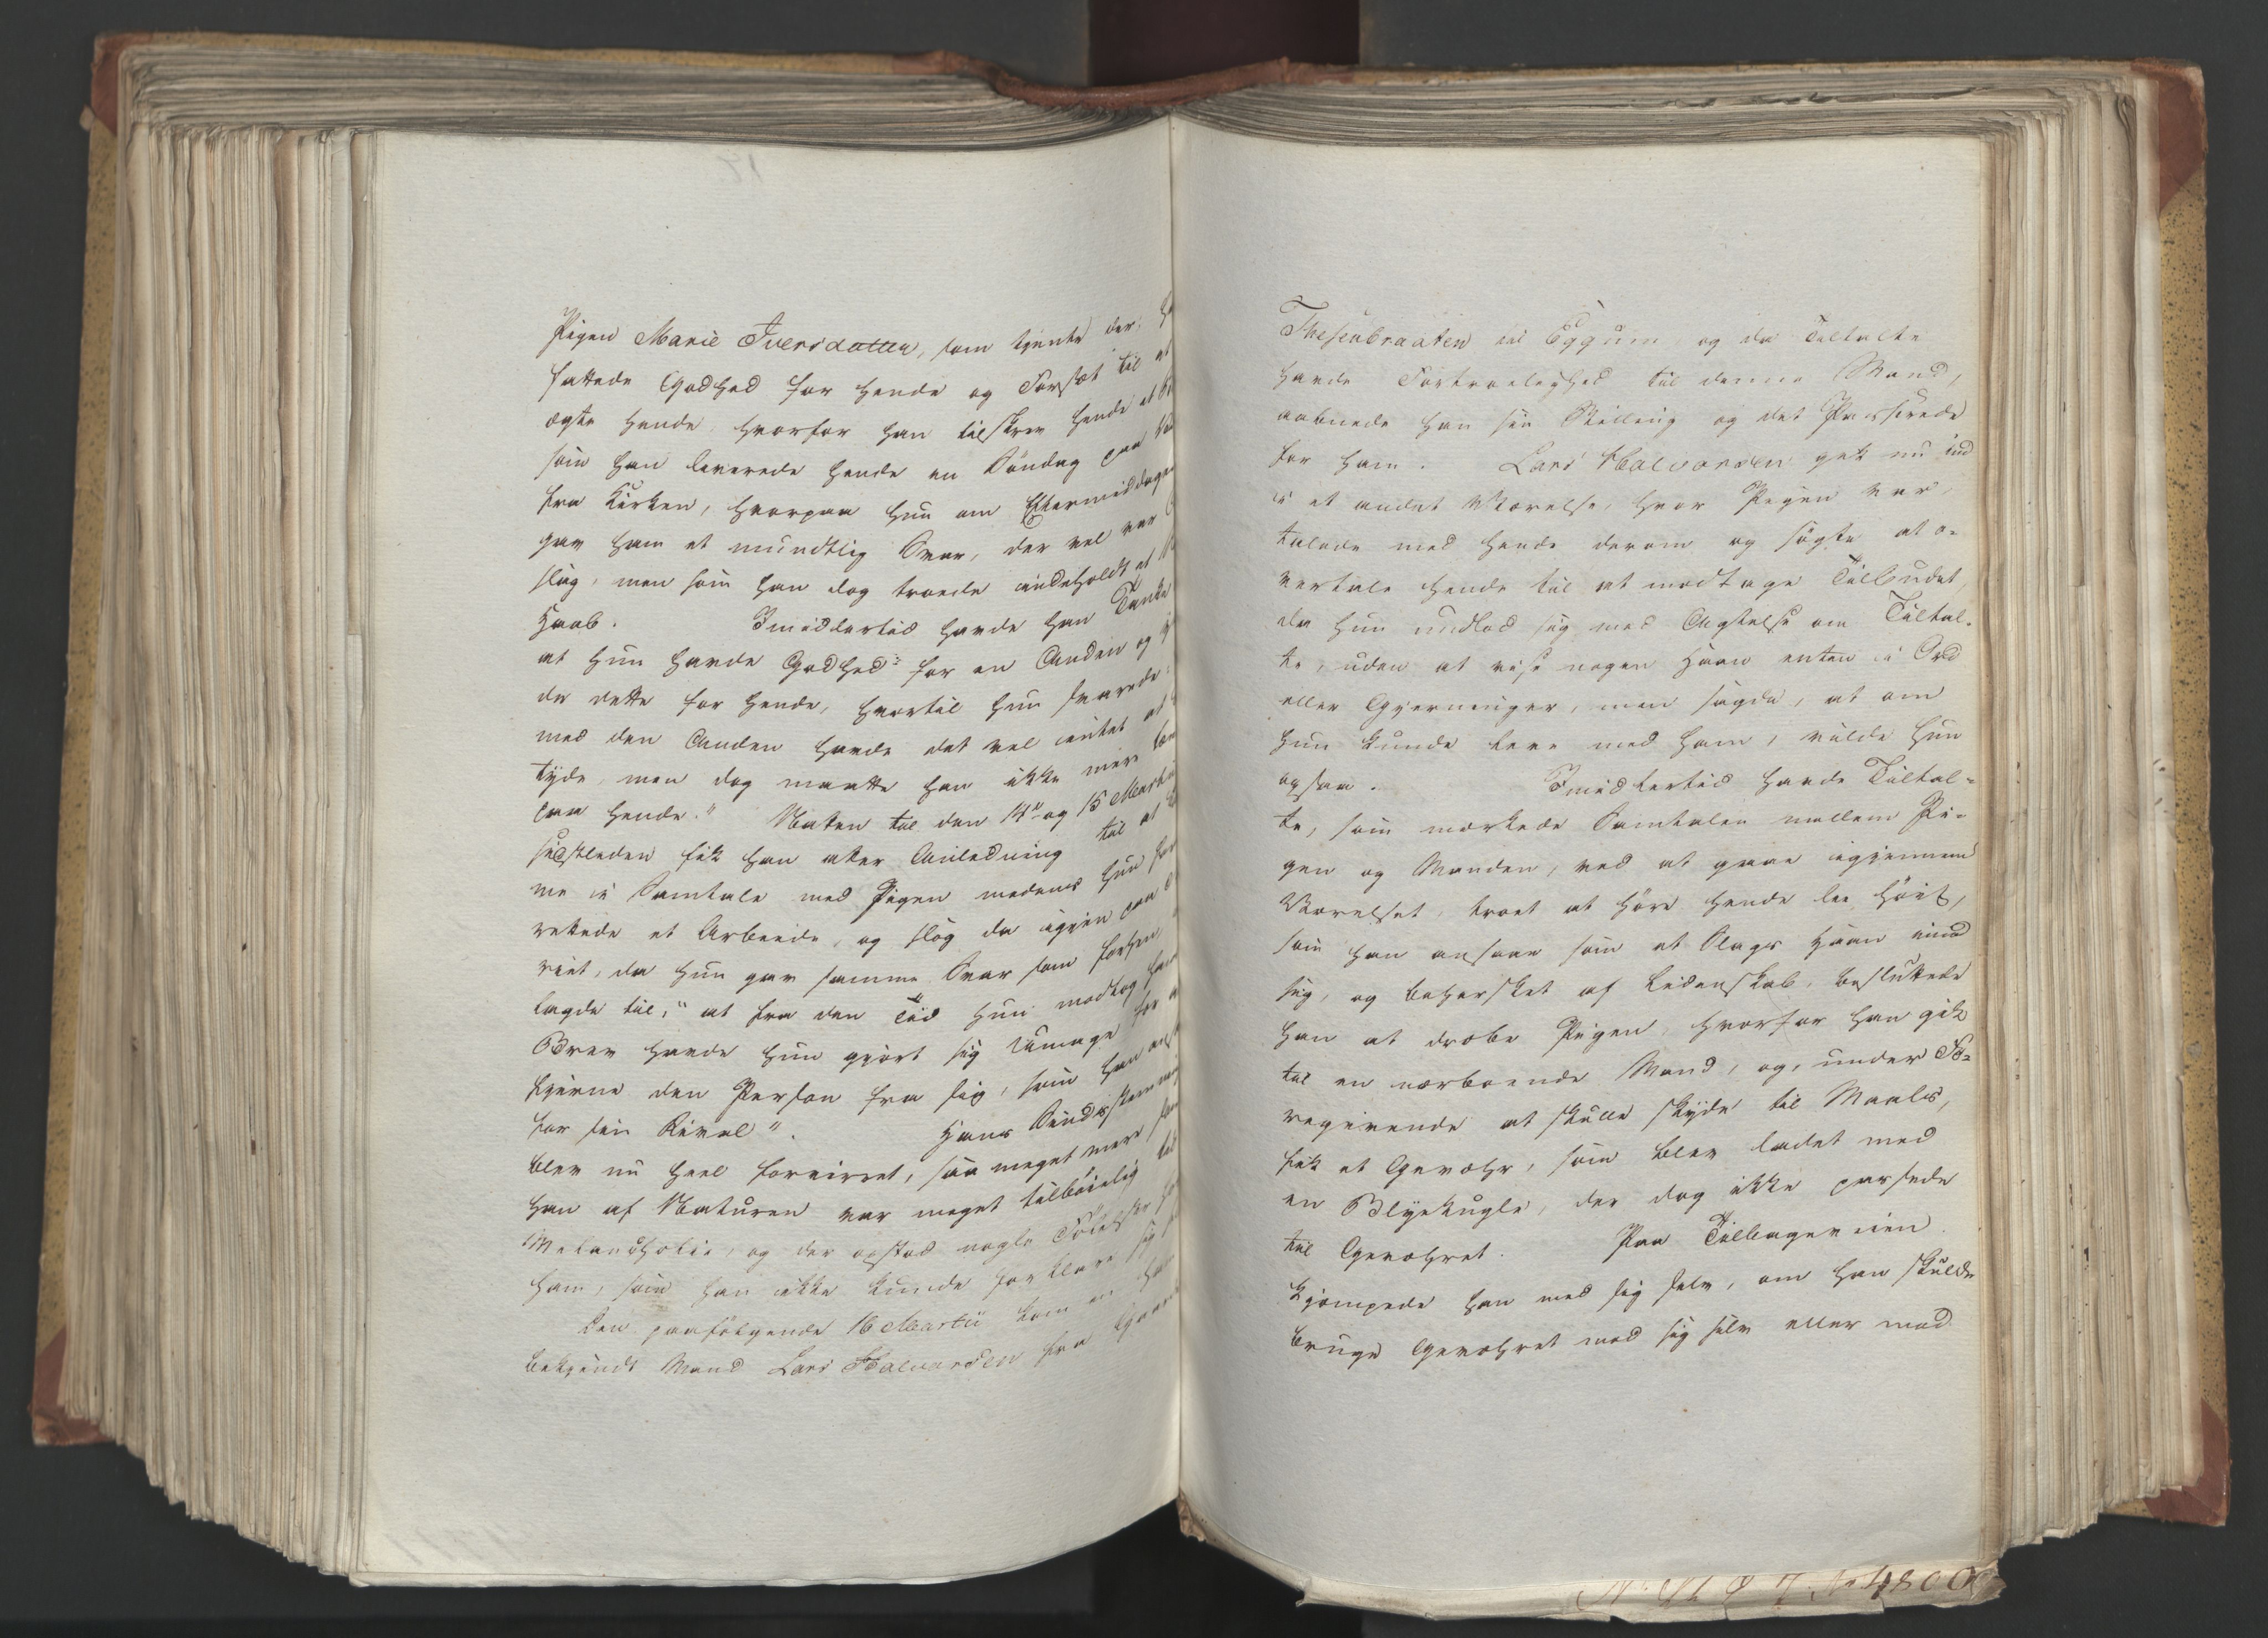 Pigen Marie Iversdatter, som tjente der,
fattede Godhed for hende og Forsæt til at
ægte hende hvorfor han tilskrev hende et
som han leverede hende en Søndag paa
fra Kirken, hvorpaa hun om Eftermiddagen
gav ham et mundtlig Svar, der vel var
slag, men som han dog troede indeholdt et
Haab. Imidlertid havde han Tanke
at hun havde Godhed for en Anden og
de dette for hende, hvortil hun svarede:
med den Anden havde det vel intet at
tyde, men dog maatte han ikke mere
paa hende." Natten til den 14de og 15 Martii
sidstleden fik han atter Anledning til at
me i Samtale med Pigen medens hun
rettede et Arbeide, og slog da igjen paa
riet, da hun gav samme Svar som forhen
lagde til, "at fra den Tid hun modtog hans
Brev havde hun gjort sig Umage for at
fjerne den Person fra sig, som han
for sin Rival". Hans Sindsstemning
blev nu heel forvirret, saa meget mere som
han af Naturen var meget tilbøielig til
Melancholie, og der opstod nogle Følelser hos
ham, som han ikke kunde forklare sig
Den paafølgende 16 Martii kom en ham
bekjendt Mand Lars Halvorsen fra
Thesenbraaten til Eggum og da Tiltalte
havde Fortroelighed til denne Mand,
aabnede han sin Stilling og det Passerede
for ham. Lars Halvorsen gik nu ind
i et andet Værelse, hvor Pigen var,
talede med hende derom og søgte at o-
vertale hende til at modtage Tilbudet,
da hun undlod sig med Agtelse om Tiltal-
te, uden at vise nogen Haan enten i Ord
eller Gjerninger, men sagde, at om
hun kunde leve med ham, vilde hun
ogsaa. Imidlertid havde Tiltal-
te, som mærkede Samtalen mellem Pi-
gen og Manden, ved at gaae igjennem
Værelset, troet at høre hende lee høit,
som han ansaae som et Slags Haan imod
sig, og behersket af Lidenskab, besluttede
han at dræbe Pigen, hvorfor han gik
til en nærboende Mand, og, under Fo-
regivende at skulle skyde til Maals,
fik et Gevæhr, som blev ladet med
en Blyekugle, der dog ikke passede
til Gevæhret. Paa Tilbageveien
kjæmpede han med sig selv, om han skulde
bruge Gevæhret mod sig selv eller mod